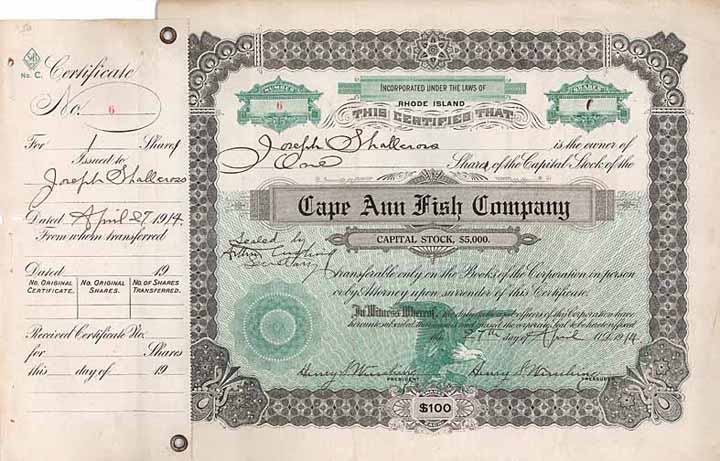 No. C. Certificate
No. 6
For 1 Shares
Issued to
Joseph Shallcross
Dated April 27 1914
From whom transferred
Dated 19
No. Original Certificate. No. Original Shares. No. of Shares Transferred.
Received Certificate No.
for Shares
this day of 19
Incorporated under the laws of
Rhode Island
Number 6
Shares 1
This Certifies that
Joseph Shallcross is the owner of
One Shares of the Capital Stock of the
Cape Ann Fish Company
Capital Stock, $5,000.
Sealed by
Secretary
transferable only on the Books of the Corporation in person
or by Attorney upon surrender of this Certificate.
In Witness Whereof, the duly authorized officers of this Corporation have
hereunto subscribed their names and caused the corporate Seal to be hereto affixed
this 27th day of April A.D. 1914
Henry S. Henry S.
President Treasurer
$100